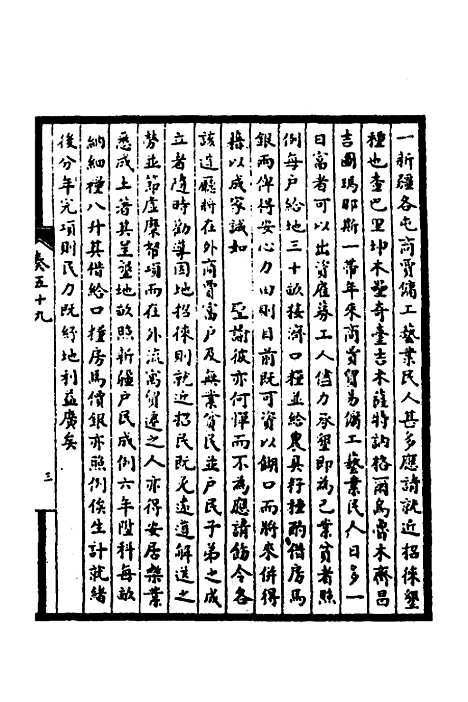 一新疆各屯商賈傭工藝業民人甚多應請就近招徠墾
種也查巴里坤木壘奇臺吉木薩特訥格爾烏魯木齊昌
吉圖瑪那斯一帶年來商賈貿易傭工藝業民人日多一
日富者可以出資雇募工人儘力承墾即為己業貧者照
例每戶給地三十畝接濟口糧並給農具籽種酌借房馬
銀兩俾得安心力田則目前既可資以餬口而將來併得
藉以成家誠如 聖諭彼亦何憚而不為應請飭令各
該道廳將在外商賈富戶及無業貧民並戶民子弟之成
立者隨時勸導因地招徠則就近招民既無遠道解送之
勞並節虛糜帑項而在外流寓貿遷之人亦得安居樂業
悉成土著其呈墾地畝照新疆戶民成例六年陞科每畝
納細糧八升其借給口糧房馬價銀亦照例俟生計就緒
後分年完項則民力既紓地利益廣矣
卷五十九
三